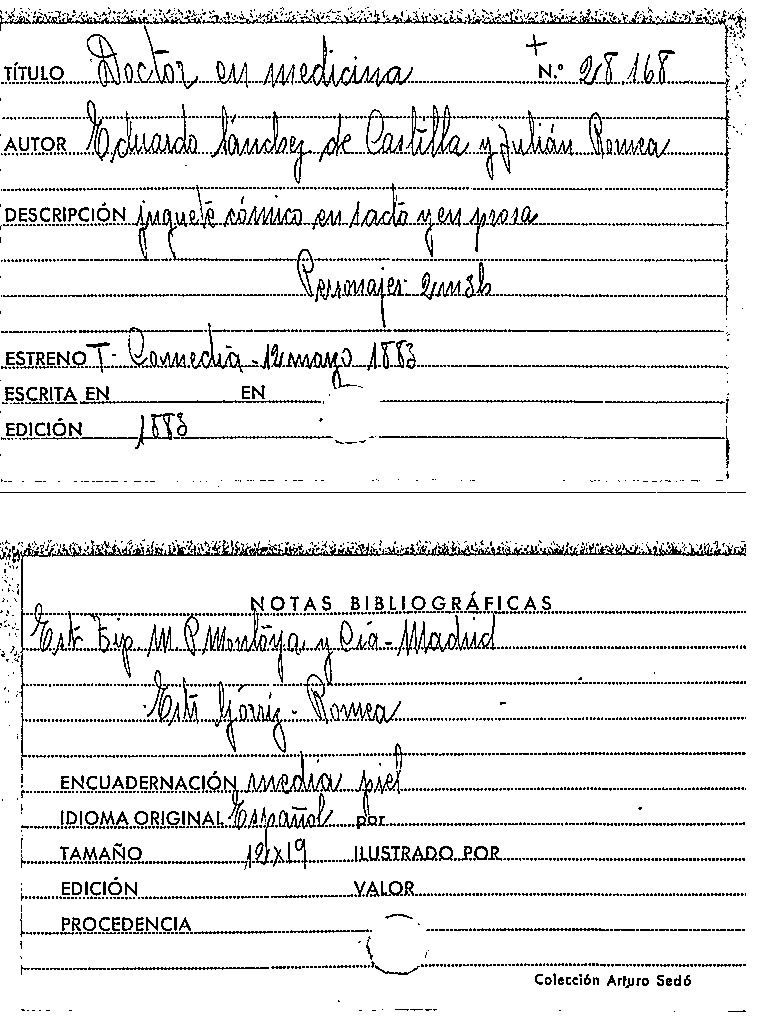 +
TÍTULO Doctor en medicina N.º 28.168
AUTOR Eduardo Sánchez de Castilla y Julián Romea
DESCRIPCIÓN juguete cómico en 1 acto y en prosa
Personajes 2m3h
ESTRENO T- Comedia - 12 mayo 1883
ESCRITA EN EN
EDICIÓN 1883
NOTAS BIBLIOGRÁFICAS
Est Tip M. P. Montoya y Cía - Madrid
Estr Górriz - Romea
ENCUADERNACIÓN media piel
IDIOMA ORIGINAL Español por
TAMAÑO 12x19 ILUSTRADO POR
EDICIÓN VALOR
PROCEDENCIA
Colección Arturo Sedó